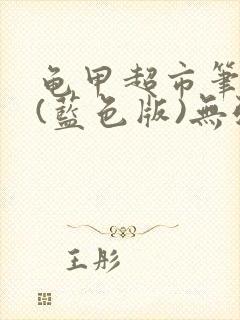 龟甲超市筆
(藍色版)無
王彤